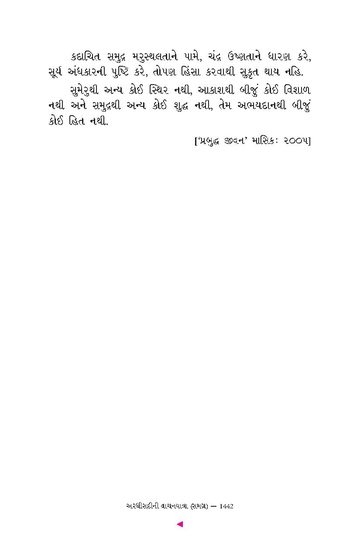 કદાચિત સમુદ્ર મરુસ્થલતાને પામે, ચંદ્ર ઉષ્ણતાને ધારણ કરે,
સૂર્ય અંધકારની પુષ્ટિ કરે, તોપણ હિંસા કરવાથી સુકૃત થાય નહિ.
સુમેરુથી અન્ય કોઈ સ્થિર નથી, આકાશથી બીજું કોઈ વિશાળ
નથી અને સમુદ્રથી અન્ય કોઈ શુદ્ધ નથી, તેમ અભયદાનથી બીજું
કોઈ હિત નથી.
['પ્રબુદ્ધ જીવન' માસિક: ૨૦૦૫]
અરધીસદીની વાચનયાત્રા (સમગ્ર) — 1442